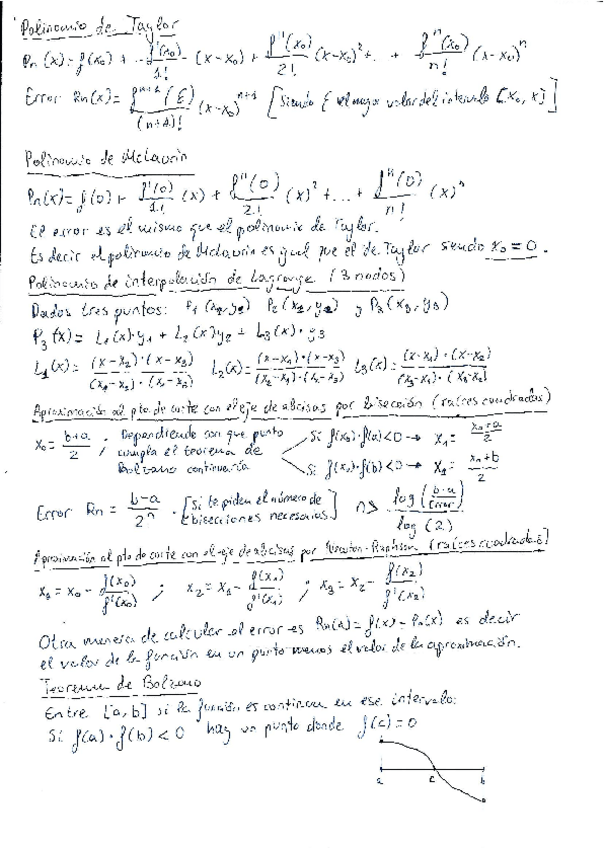 Polinomio de Taylor
Pn (x) = f(x₀) + - f'(x₀)/1! - (x-x₀) + f''(x₀)/2! (x-x₀)² + .. + fⁿ(x₀)/n! (x-x₀)ⁿ
Error Rn(x) = fⁿ⁺¹(ξ)/(n+1)! (x-x₀)ⁿ⁺¹ [Siendo ξ el mayor valor del intervalo [x₀, x]]
Polinomio de McLaurin
Pn(x) = f(0) + f'(0)/1! (x) + f''(0)/2! (x)² + ... + fⁿ(0)/n! (x)ⁿ
El error es el mismo que el polinomio de Taylor.
Es decir el polinomio de McLaurin es igual que el de Taylor siendo x₀ = 0.
Polinomio de interpolación de Lagrange (3 nodos)
Dados tres puntos: P₁ (x₁, y₁) P₂ (x₂, y₂) y P₃ (x₃, y₃)
P₃(x) = L₁(x)·y₁ + L₂(x)y₂ + L₃(x)·y₃
L₁(x) = (x-x₂)·(x-x₃)/(x₁-x₂)·(x₁-x₃) L₂(x) = (x-x₁)·(x-x₃)/(x₂-x₁)·(x₂-x₃) L₃(x) = (x-x₁)·(x-x₂)/(x₃-x₁)·(x₃-x₂)
Aproximación al pto de corte con el eje de abcisas por bisección (raíces cuadradas)
x₀ = b+a/2 ; Dependiendo con que punto cumpla el teorema de Bolzano continuaría
Si f(x₀)·f(a)<0 → x₁ = x₀+a/2
Si f(x₀)·f(b)<0 → x₁ = x₀+b/2
Error Rn = b-a/2ⁿ · [Si te piden el número de bisecciones necesarias] n > log(b-a/Error)/log(2)
Aproximación al pto de corte con el eje de abcisas por Newton-Raphson (raíces cuadradas)
x₁ = x₀ - f(x₀)/f'(x₀) ; x₂ = x₁ - f(x₁)/f'(x₁) ; x₃ = x₂ - f(x₂)/f'(x₂)
Otra manera de calcular el error es Rn(x) = f(x) - Pn(x) es decir
el valor de la función en un punto menos el valor de la aproximación.
Teorema de Bolzano
Entre [a, b] si la función es continua en ese intervalo:
Si f(a)·f(b) < 0 hay un punto donde f(c) = 0
a c b